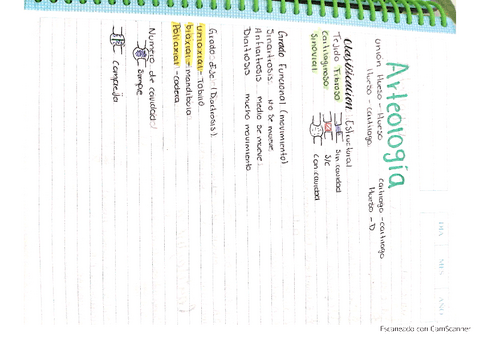 Arteología
unión Hueso - Hueso
Hueso - cartilago
cartilago - cartilago
Hueso - D
Clasificacion Estructural
Tejido Fibroso sin cavidad
Cartilaginoso s/c
Sinovial con cavidad
Grado Funcional (movimiento)
Sinartrosis No se mueve
Anfiartrosis medio se mueve
Diartrosis mucho movimiento
Grado d'Eje (Diartrosis)
uniaxial - Tobillo
biaxial - mandibula
Poliaxial - cadera
Numero de cavidad
Simple
compleja
DIA MES AÑO
Escaneado con CamScanner